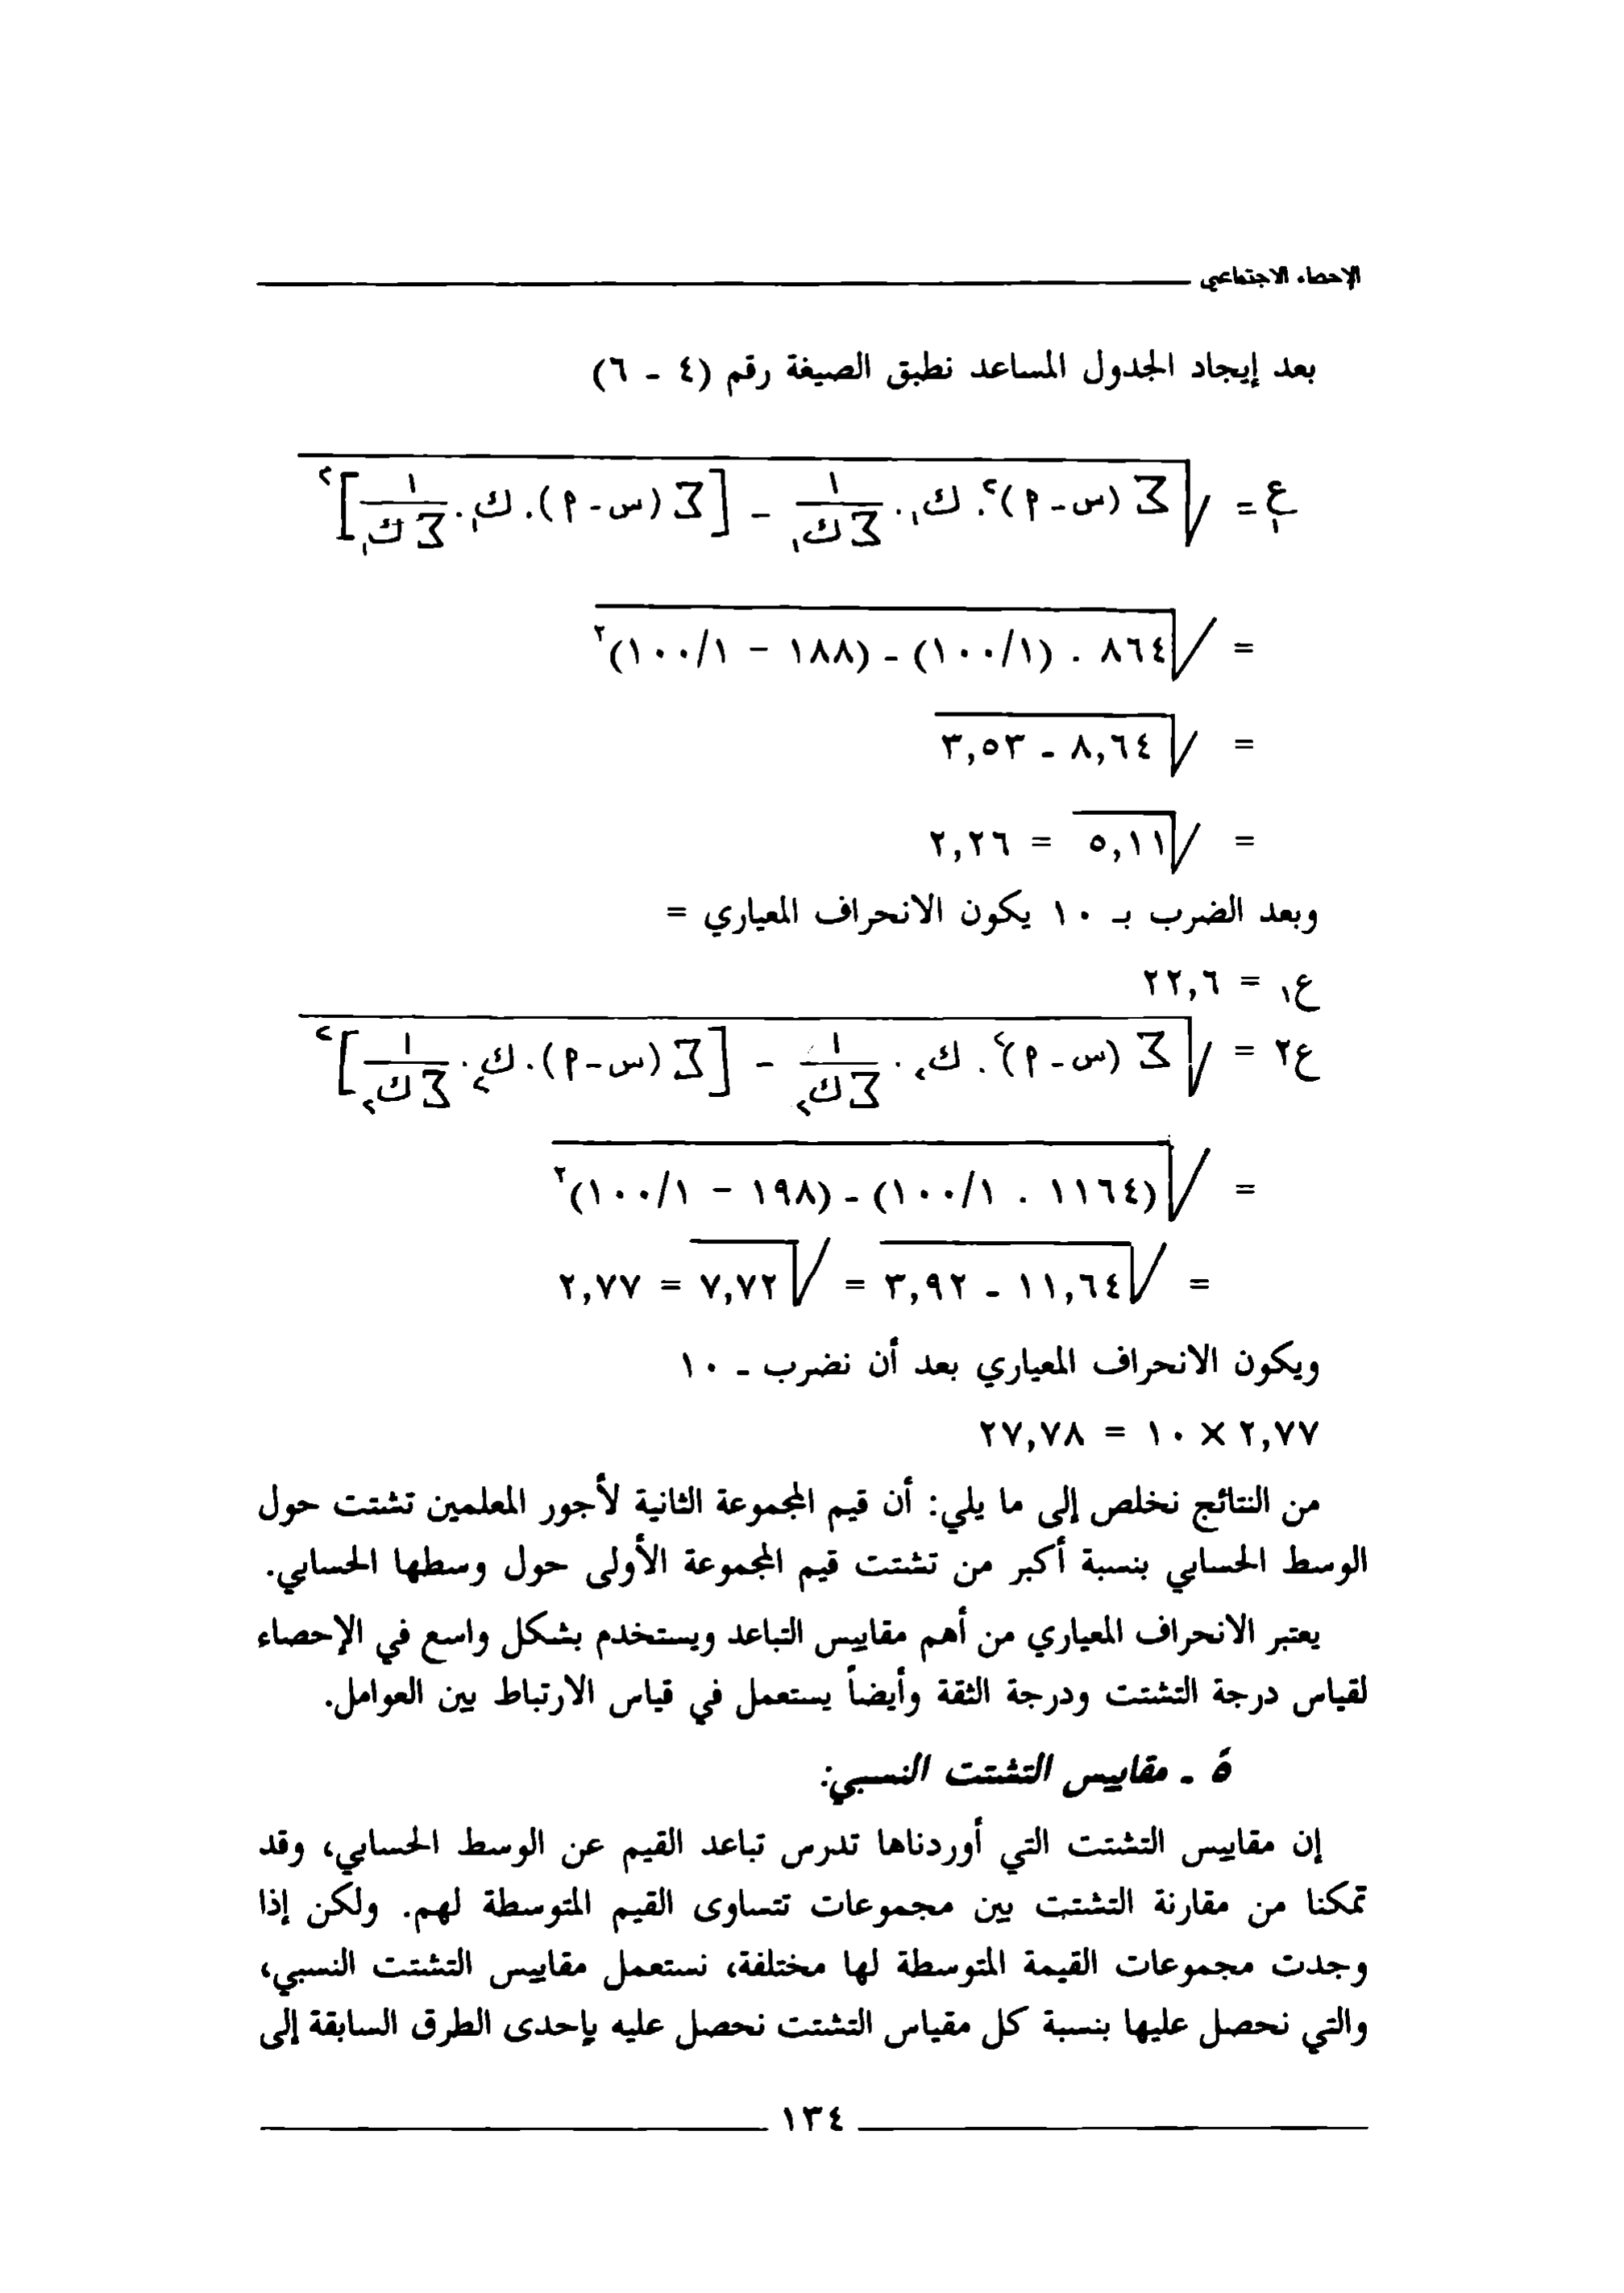 الإحصاء الاجتماعي
بعد إيجاد الجدول المساعد نطبق الصيغة رقم (٤ - ٦)
ع١ = √ Σ (س - م)٢ . ك١ . ١/Σ ك١ - [Σ (س - م) . ك١ . ١/Σ ك١]٢
= √ ٨٦٤ . (١/١٠٠) - (١٨٨ - ١/١٠٠)٢
= √ ٨,٦٤ - ٣,٥٣
= √ ٥,١١ = ٢,٢٦
وبعد الضرب بـ ١٠ يكون الانحراف المعياري =
ع١ = ٢٢,٦
ع٢ = √ Σ (س - م)٢ . ك٢ . ١/Σ ك٢ - [Σ (س - م) . ك٢ . ١/Σ ك٢]٢
= √ (١١٦٤ . ١/١٠٠) - (١٩٨ - ١/١٠٠)٢
= √ ١١,٦٤ - ٣,٩٢ = √ ٧,٧٢ = ٢,٧٧
ويكون الانحراف المعياري بعد أن نضرب - ١٠
٢,٧٧ × ١٠ = ٢٧,٧٨
من النتائج نخلص إلى ما يلي: أن قيم المجموعة الثانية لأجور المعلمين تشتت حول
الوسط الحسابي بنسبة أكبر من تشتت قيم المجموعة الأولى حول وسطها الحسابي.
يعتبر الانحراف المعياري من أهم مقاييس التباعد ويستخدم بشكل واسع في الإحصاء
لقياس درجة التشتت ودرجة الثقة وأيضاً يستعمل في قياس الارتباط بين العوامل.
هً - مقاييس التشتت النسبي:
إن مقاييس التشتت التي أوردناها تدرس تباعد القيم عن الوسط الحسابي، وقد
تمكنا من مقارنة التشتت بين مجموعات تتساوى القيم المتوسطة لهم. ولكن إذا
وجدت مجموعات القيمة المتوسطة لها مختلفة، نستعمل مقاييس التشتت النسبي،
والتي نحصل عليها بنسبة كل مقياس التشتت نحصل عليه بإحدى الطرق السابقة إلى
١٣٤